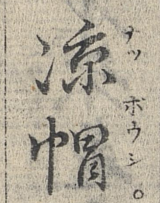 涼帽
ナツボウシ。